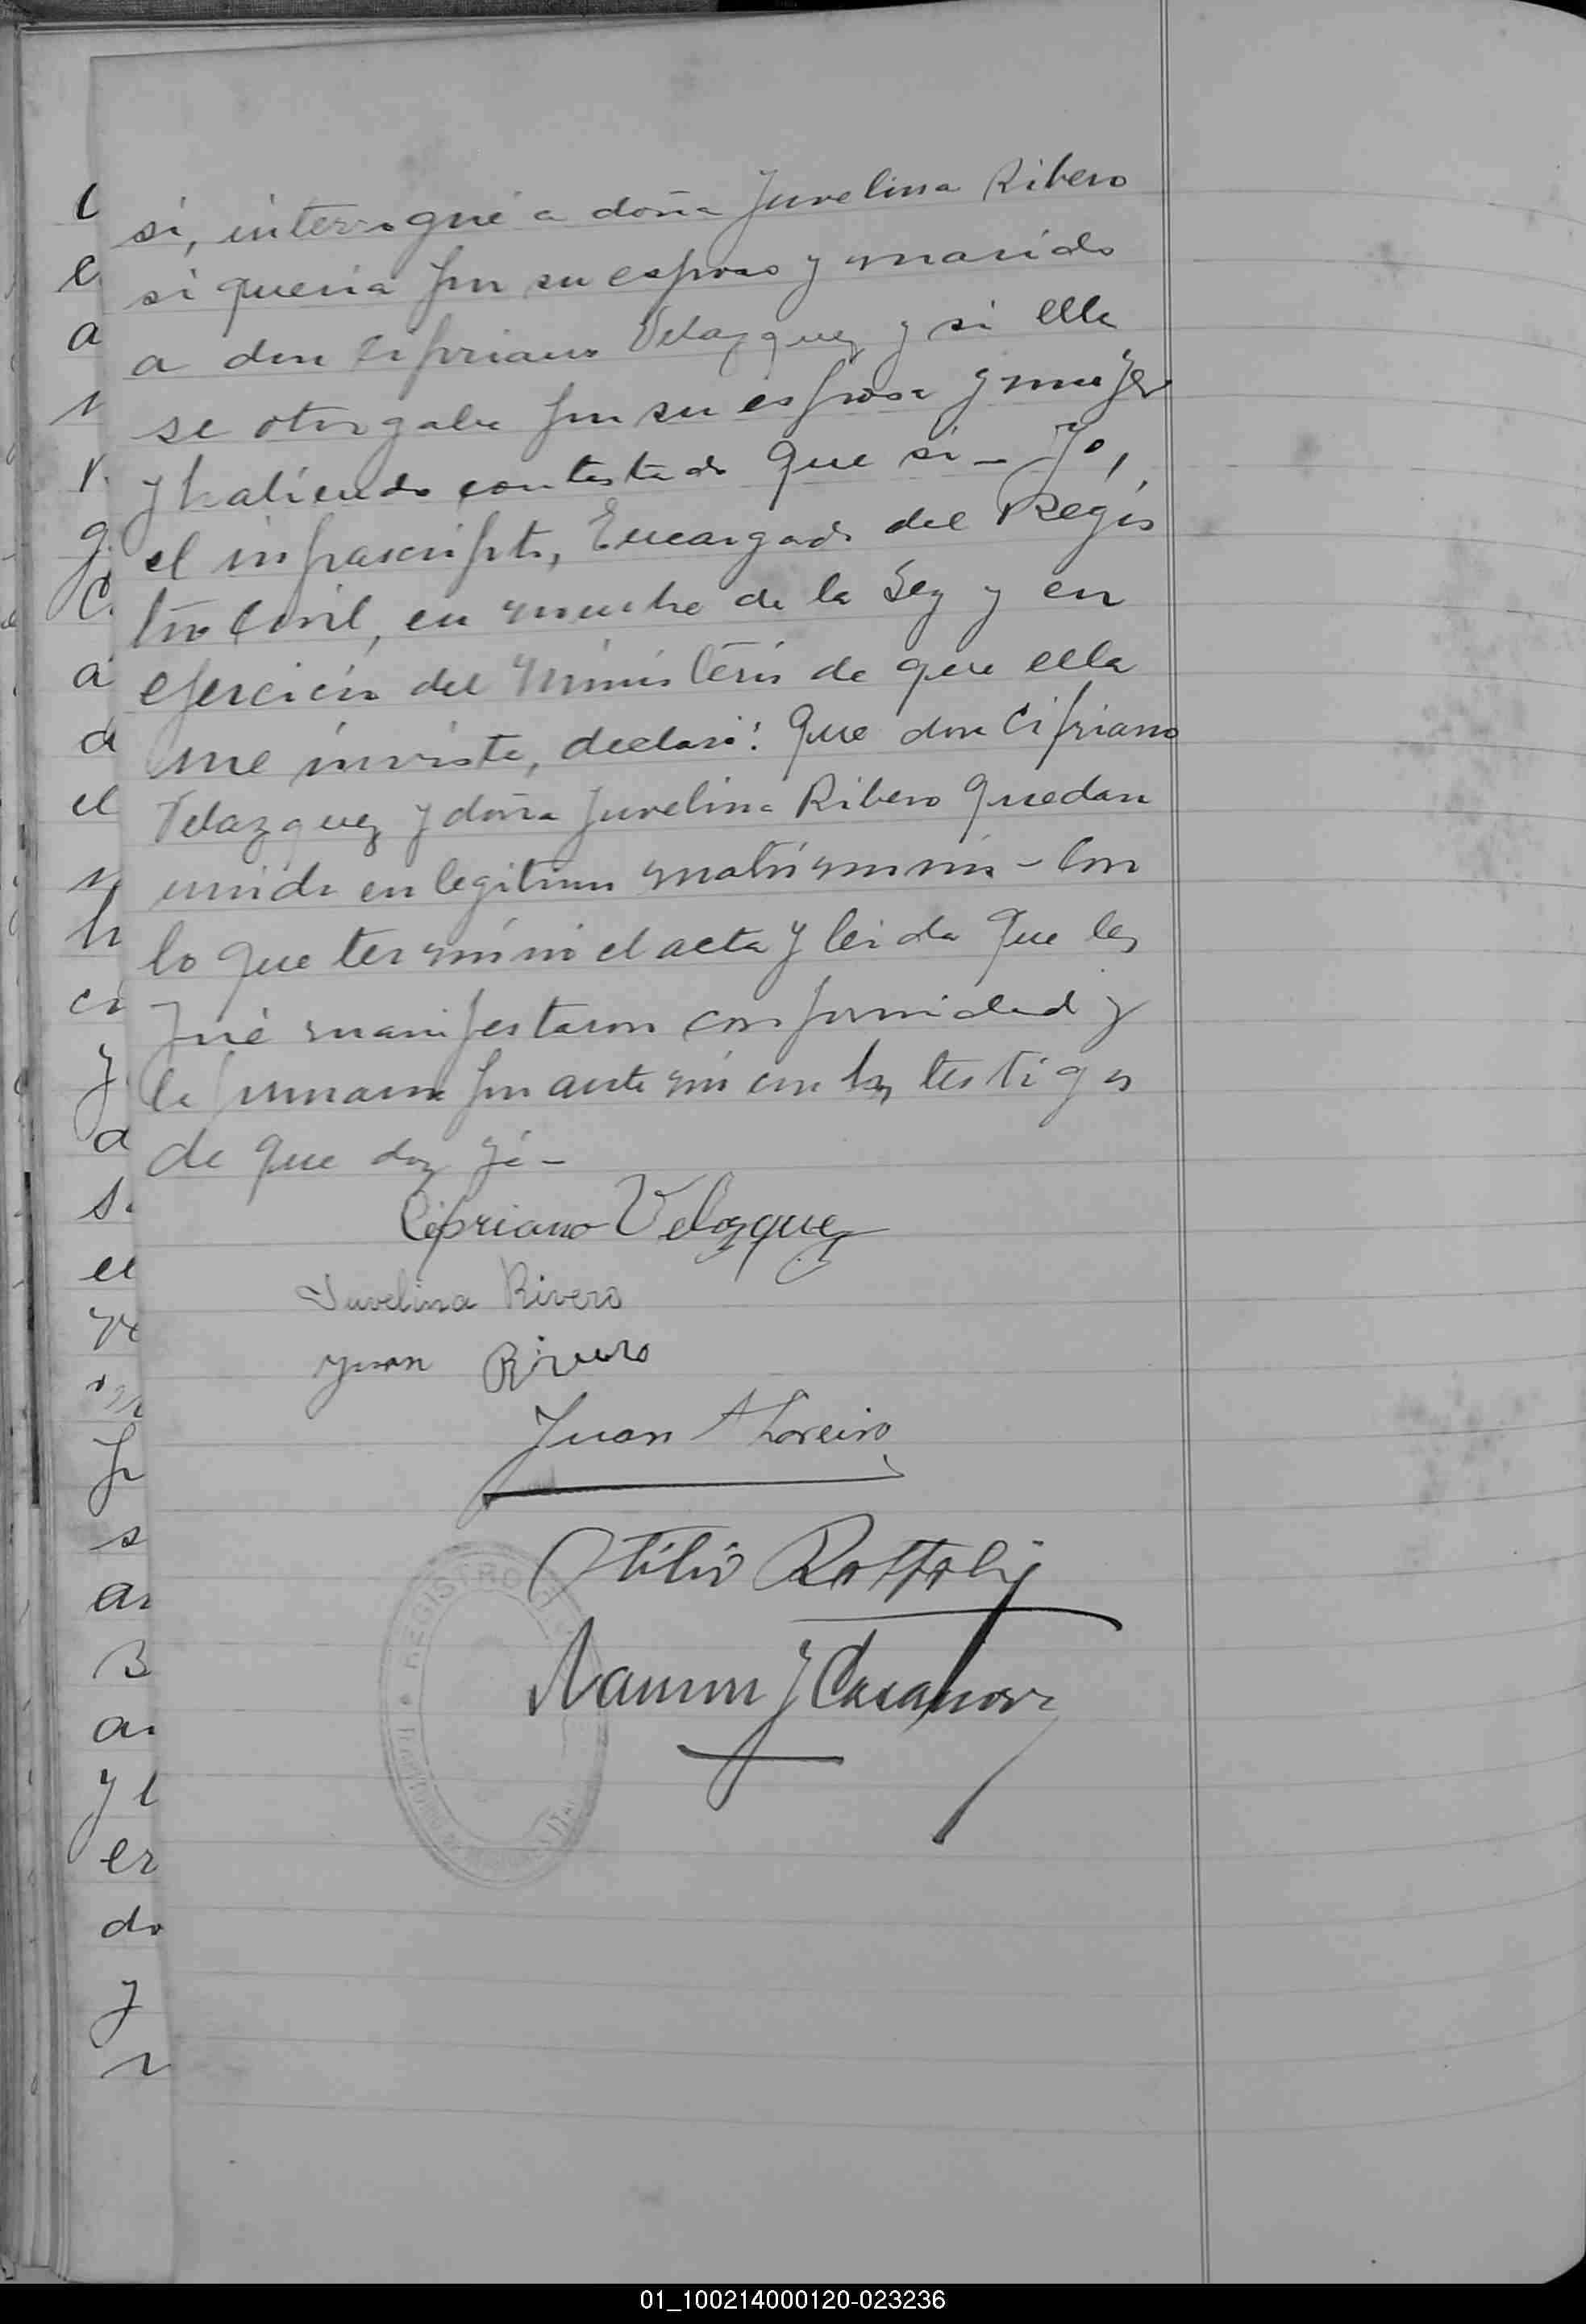 si, interrogué a doña Juvelina Ribero
si queria por su esposo y marido
a don Cipriano Velazquez y si ella
se otorgaba por su esposa y mujer
y habiendo contestado que si – Yo,
el infrascripto, Encargado del Regis
tro Civil, en nombre de la Ley y en
ejercicio del Ministerio de que ella
me inviste, declaro: Que don Cipriano
Velazquez y doña Juvelina Ribero quedan
unido en legitimo matrimonio – Con
lo que terminó el acta y leida que les
fué manifestaron conformidad y
la firmaron por ante mi con los testigos
de que doy fé –
Cipriano Velazquez
Juvelina Rivero
Juan Rivero
Juan A Loreiro
Otilio
Ramon J Casanova
REGISTRO
01_100214000120-023236